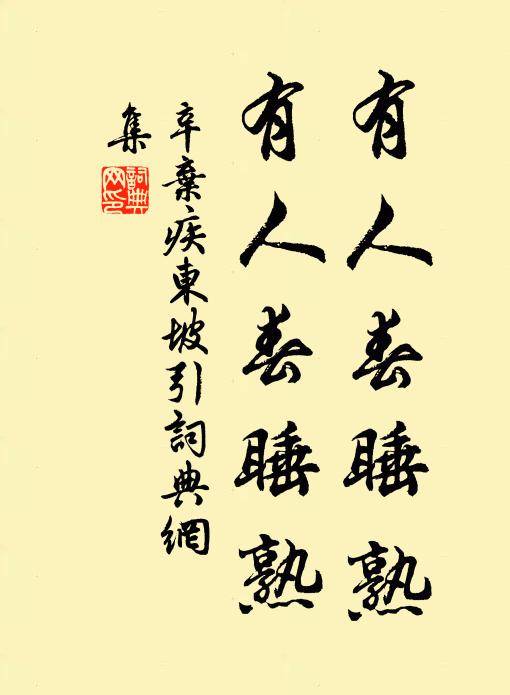 有人春睡熟
有人春睡熟
辛棄疾東坡引詞典網
集
詞典網印